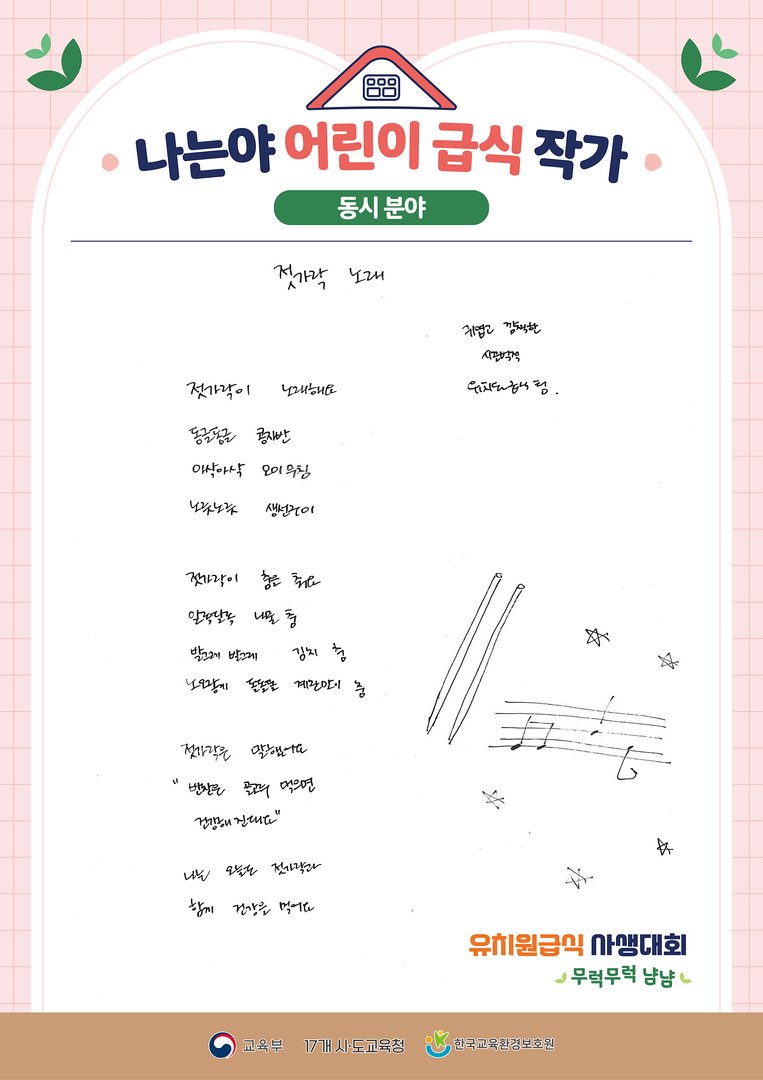 나는야 어린이 급식 작가
동시 분야
젓가락 노래
귀엽고 깜찍한
유치원 급식 팀.
젓가락이 노래해요
동글동글 콩자반
아삭아삭 오이무침
노릇노릇 생선구이
젓가락이 춤을 춰요
알록달록 나물 춤
발그레 발그레 김치 춤
노오랗게 돌돌만 계란말이 춤
젓가락은 말했어요
"반찬을 골고루 먹으면
건강해진대요"
나는 오늘도 젓가락과
함께 건강을 먹어요
유치원급식 사생대회
무럭무럭 냠냠
교육부 17개 시·도교육청 한국교육환경보호원